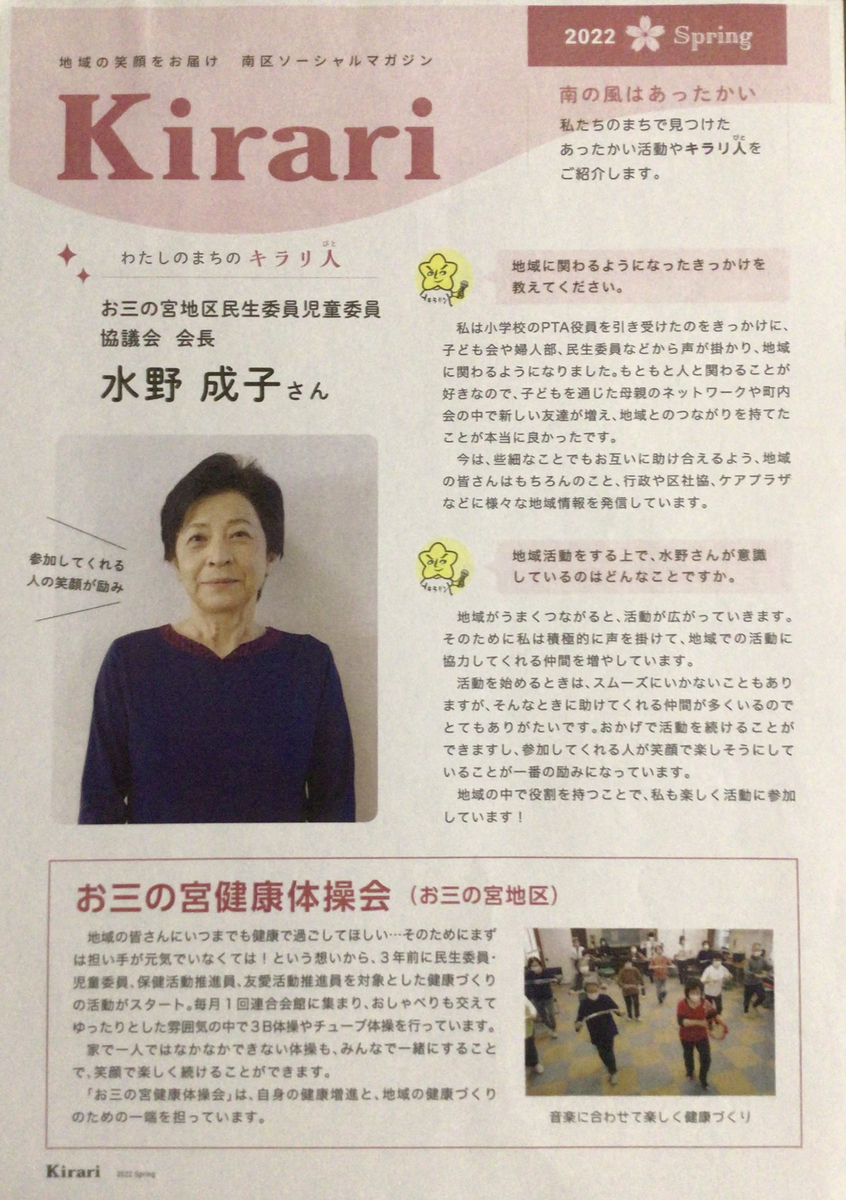 地域の笑顔をお届け 南区ソーシャルマガジン
Kirari
2022 Spring
南の風はあったかい
私たちのまちで見つけた
あったかい活動やキラリ人を
びと
ご紹介します。
わたしのまちの キラリ人
びと
お三の宮地区民生委員児童委員
協議会 会長
水野 成子さん
参加してくれる
人の笑顔が励み
地域に関わるようになったきっかけを
教えてください。
私は小学校のPTA役員を引き受けたのをきっかけに、
子ども会や婦人部、民生委員などから声が掛かり、地域
に関わるようになりました。もともと人と関わることが
好きなので、子どもを通じた母親のネットワークや町内
会の中で新しい友達が増え、地域とのつながりを持てた
ことが本当に良かったです。
今は、些細なことでもお互いに助け合えるよう、地域
の皆さんはもちろんのこと、行政や区社協、ケアプラザ
などに様々な地域情報を発信しています。
地域活動をする上で、水野さんが意識
しているのはどんなことですか。
地域がうまくつながると、活動が広がっていきます。
そのために私は積極的に声を掛けて、地域での活動に
協力してくれる仲間を増やしています。
活動を始めるときは、スムーズにいかないこともあり
ますが、そんなときに助けてくれる仲間が多くいるので
とてもありがたいです。おかげで活動を続けることが
できますし、参加してくれる人が笑顔で楽しそうにして
いることが一番の励みになっています。
地域の中で役割を持つことで、私も楽しく活動に参加
しています！
お三の宮健康体操会（お三の宮地区）
地域の皆さんにいつまでも健康で過ごしてほしい…そのためにまず
は担い手が元気でいなくては！という想いから、３年前に民生委員・
児童委員、保健活動推進員、友愛活動推進員を対象とした健康づくり
の活動がスタート。毎月１回連合会館に集まり、おしゃべりも交えて
ゆったりとした雰囲気の中で３Ｂ体操やチューブ体操を行っています。
家で一人ではなかなかできない体操も、みんなで一緒にすること
で、笑顔で楽しく続けることができます。
「お三の宮健康体操会」は、自身の健康増進と、地域の健康づくり
のための一端を担っています。
音楽に合わせて楽しく健康づくり
Kirari 2022 Spring